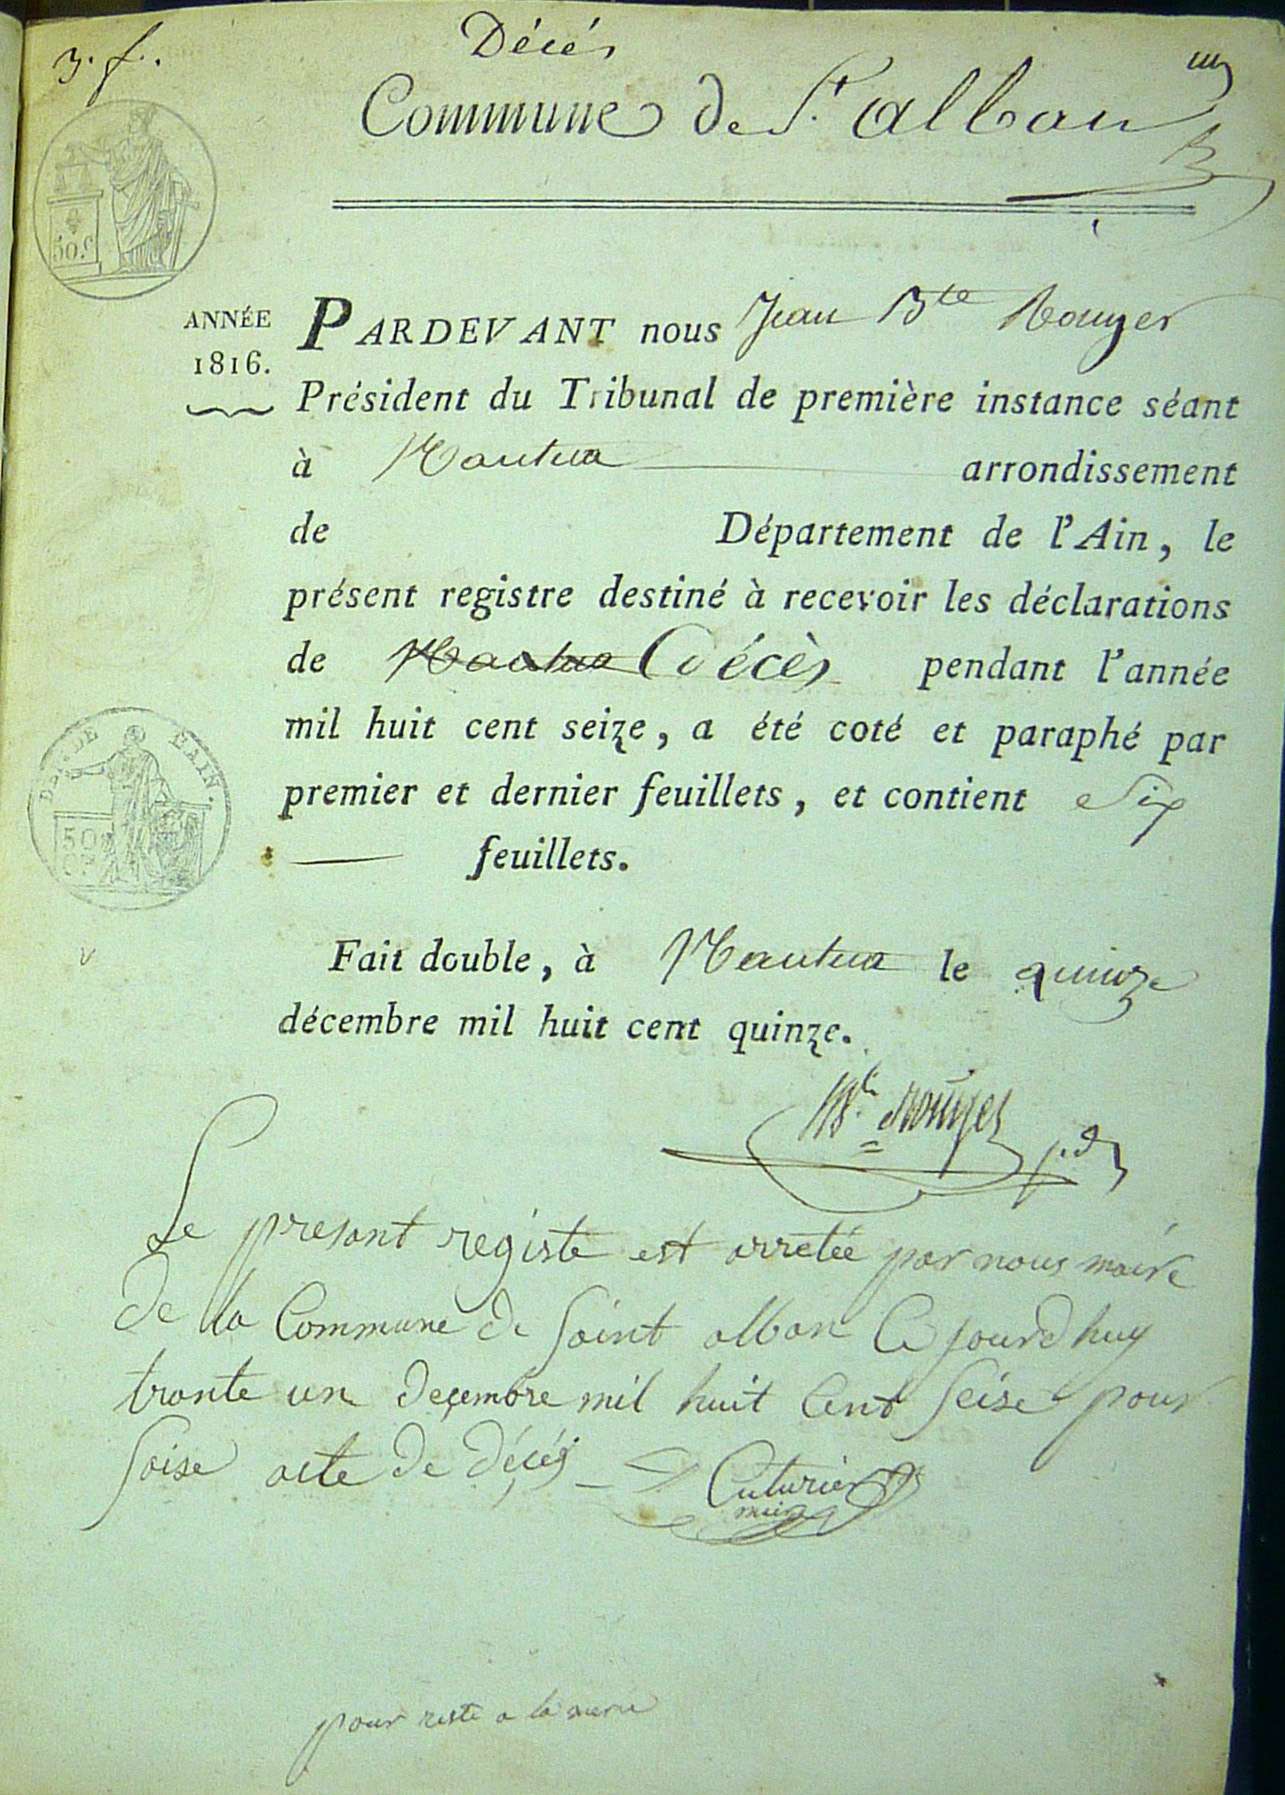 3. f.
Décés
Commune de St. alban
50 C.
ANNÉE
1816.
PARDEVANT nous Jean Bte Rouyer
Président du Tribunal de première instance séant
à Nantua arrondissement
de Département de l'Ain, le
présent registre destiné à recevoir les déclarations
de Nantua Décès pendant l'année
mil huit cent seize, a été coté et paraphé par
premier et dernier feuillets, et contient Six
feuillets.
DEP. DE L'AIN.
50
Fait double, à Nantua le quinze
décembre mil huit cent quinze.
Rouyer
Le presant registe est arretée par nous maire
de la Commune de Saint alban Ce jourdhuy
trante un decembre mil huit Cent Seise pour
Saise acte de décés
Cuturier
maire
pour reste a la